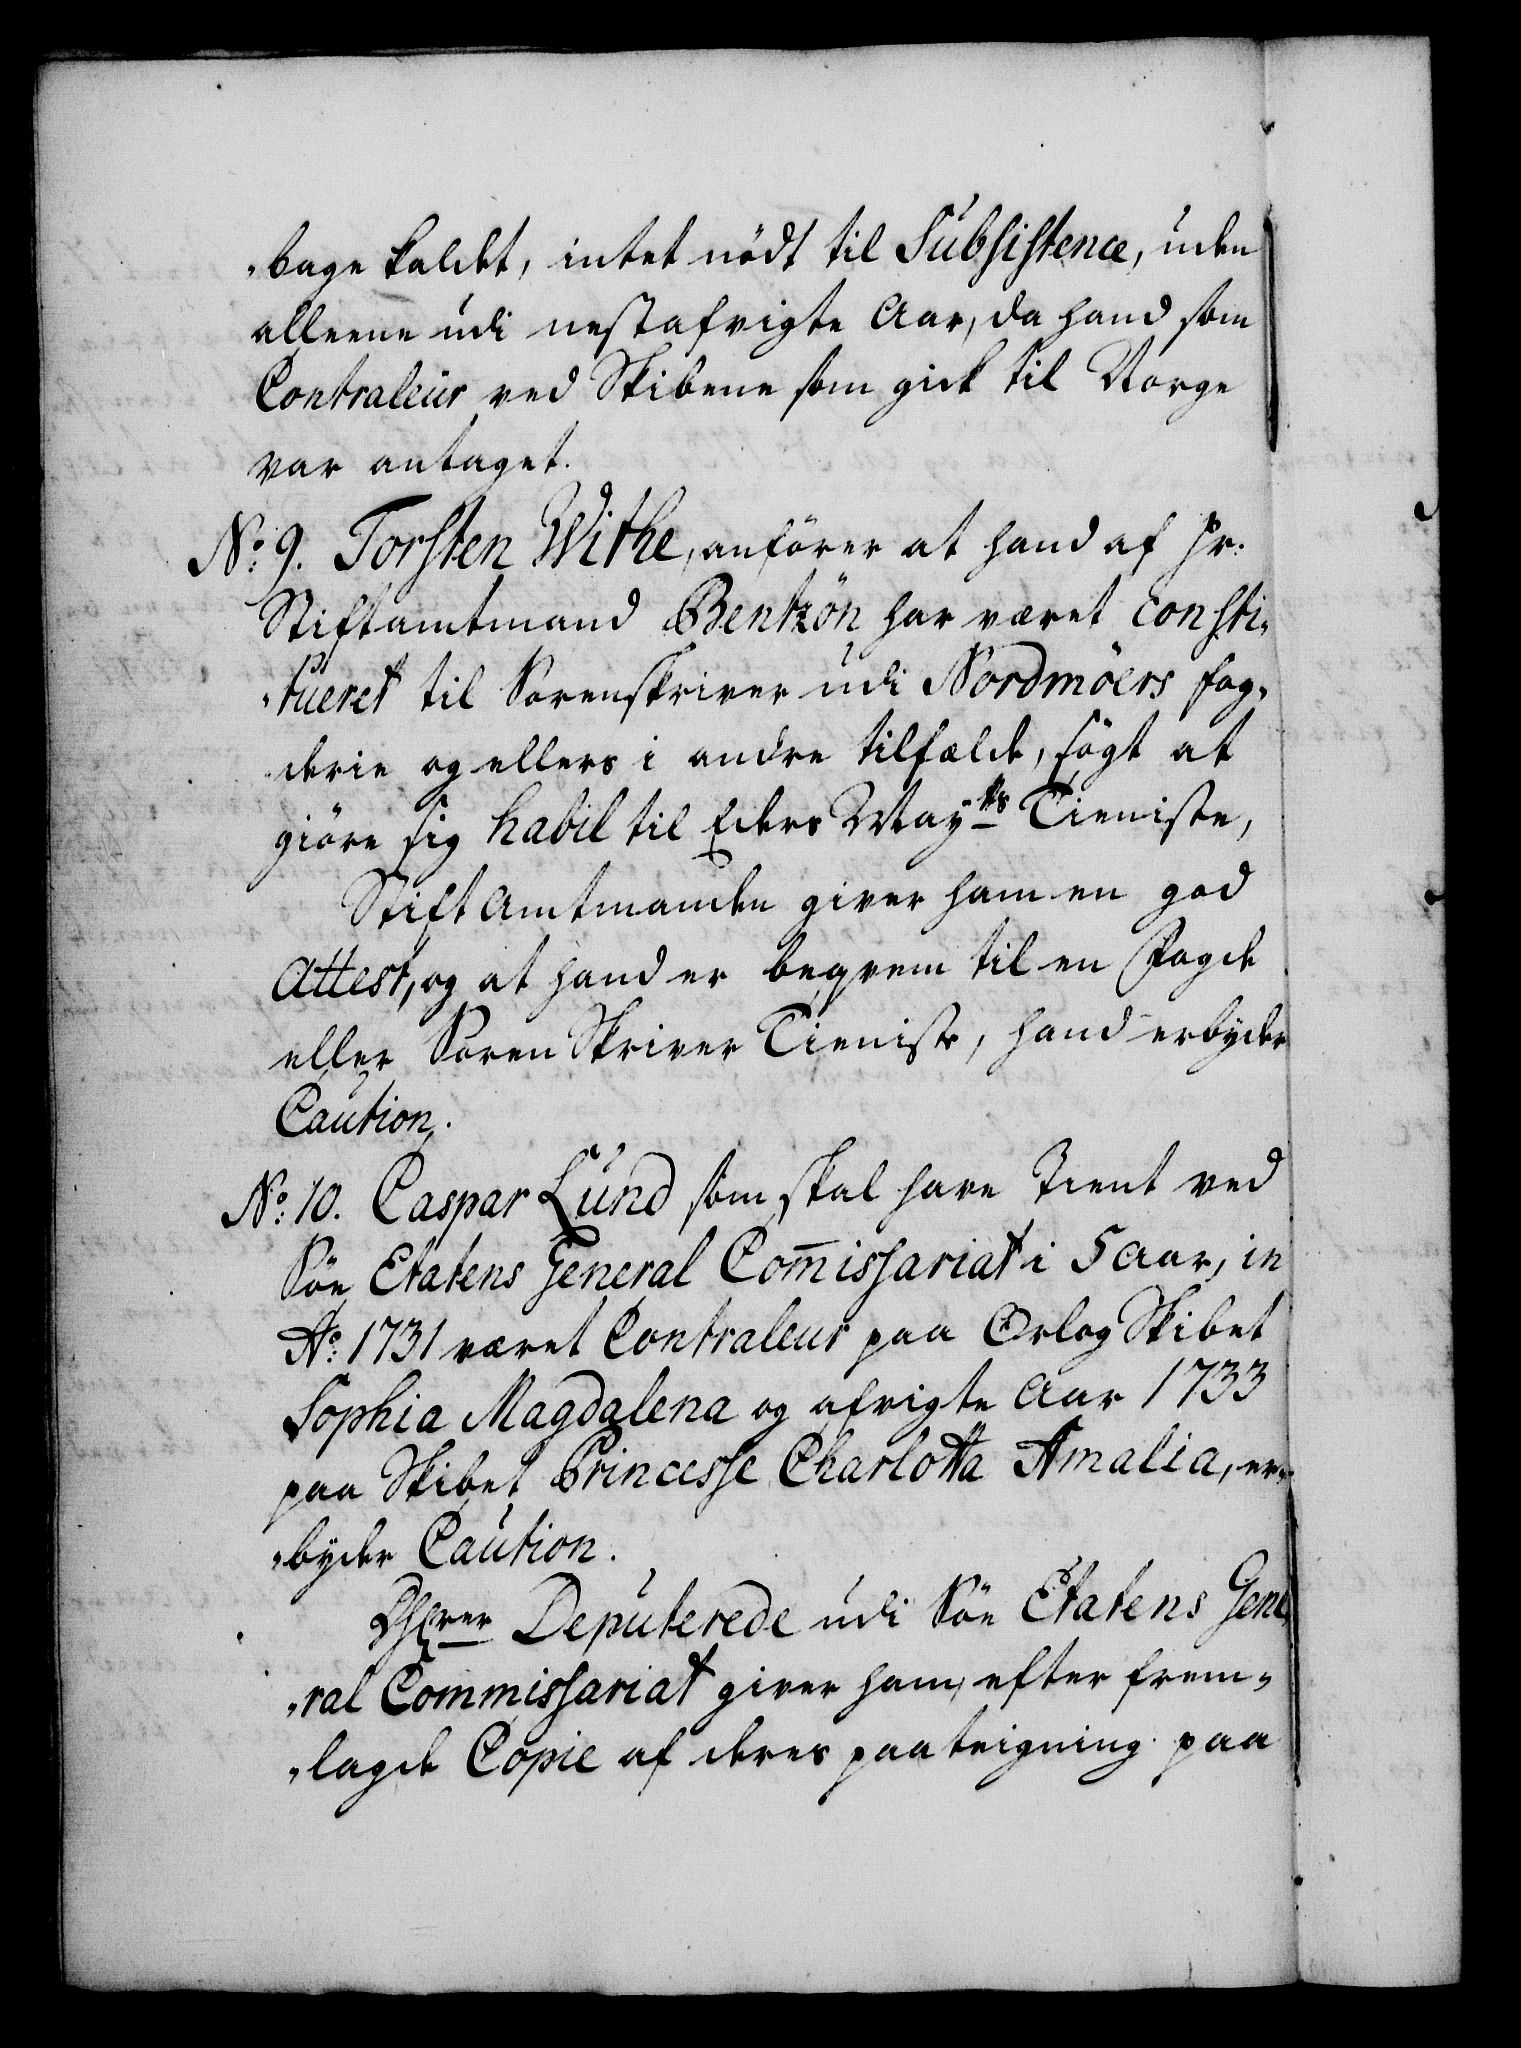 „bage kaldet, intet nödt til Subsistence, uden
alleene udi nestafvigte Aar, da hand som
Contraleur ved Skibene som gick til Norge
var antaget.
No: 9. Torsten Withe, anförer at hand af Hr.
Stiftamtmand Bentzön har været consti„
„tueret til Sorenskriver udi Nordmöers fog„
derie og ellers i andre tilfælde, sögt at
giöre sig habil til Eders Mayts Tieniste,
Stift Amtmanden giver ham en god
Attest, og at hand er beqvem til en Fogde
eller Soren Skriver Tieniste, hand erbyder
Caution.
No: 10. Caspar Lund som skal have Tient ved
Söe Etatens General Com̅issariat i 5 Aar, in
Ao: 1731 været Contraleur paa Orlog Skibet
Sophia Magdalena og afvigte Aar 1733
paa Skibet Princesse Charlotta Amalia, er„
„byder Caution.
DHrer Deputerede udi Söe Etatens Gene„
„ral Commissariat giver ham, efter frem„
„lagde Copie af deres paateigning paa